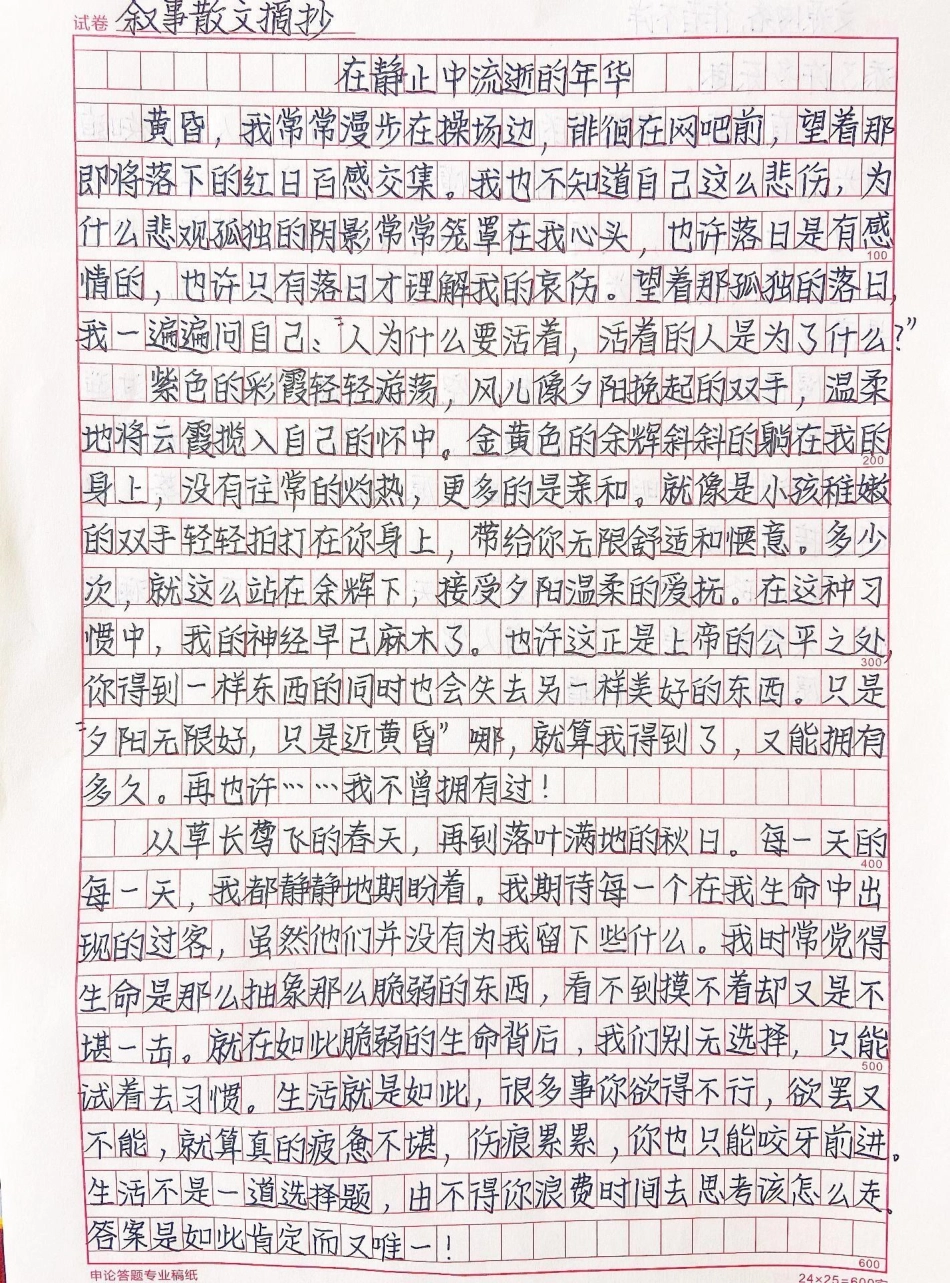 试卷 叙事散文摘抄
在静止中流逝的年华
黄昏，我常常漫步在操场边，徘徊在网吧前，望着那
即将落下的红日百感交集。我也不知道自己这么悲伤，为
什么悲观孤独的阴影常常笼罩在我心头，也许落日是有感
100
情的，也许只有落日才理解我的哀伤。望着那孤独的落日，
我一遍遍问自己：“人为什么要活着，活着的人是为了什么？”
紫色的彩霞轻轻游荡，风儿像夕阳挽起的双手，温柔
地将云霞揽入自己的怀中。金黄色的余辉斜斜的躺在我的
200
身上，没有往常的灼热，更多的是亲和。就像是小孩稚嫩
的双手轻轻拍打在你身上，带给你无限舒适和惬意。多少
次，就这么站在余辉下，接受夕阳温柔的爱抚。在这种习
惯中，我的神经早已麻木了。也许这正是上帝的公平之处，
300
你得到一样东西的同时也会失去另一样美好的东西。只是
“夕阳无限好，只是近黄昏”哪，就算我得到了，又能拥有
多久。再也许……我不曾拥有过！
从草长莺飞的春天，再到落叶满地的秋日。每一天的
400
每一天，我都静静地期盼着。我期待每一个在我生命中出
现的过客，虽然他们并没有为我留下些什么。我时常觉得
生命是那么抽象那么脆弱的东西，看不到摸不着却又是不
堪一击。就在如此脆弱的生命背后，我们别无选择，只能
500
试着去习惯。生活就是如此，很多事你欲得不行，欲罢又
不能，就算真的疲惫不堪，伤痕累累，你也只能咬牙前进。
生活不是一道选择题，由不得你浪费时间去思考该怎么走。
答案是如此肯定而又唯一！
600
申论答题专业稿纸 24×25=600字